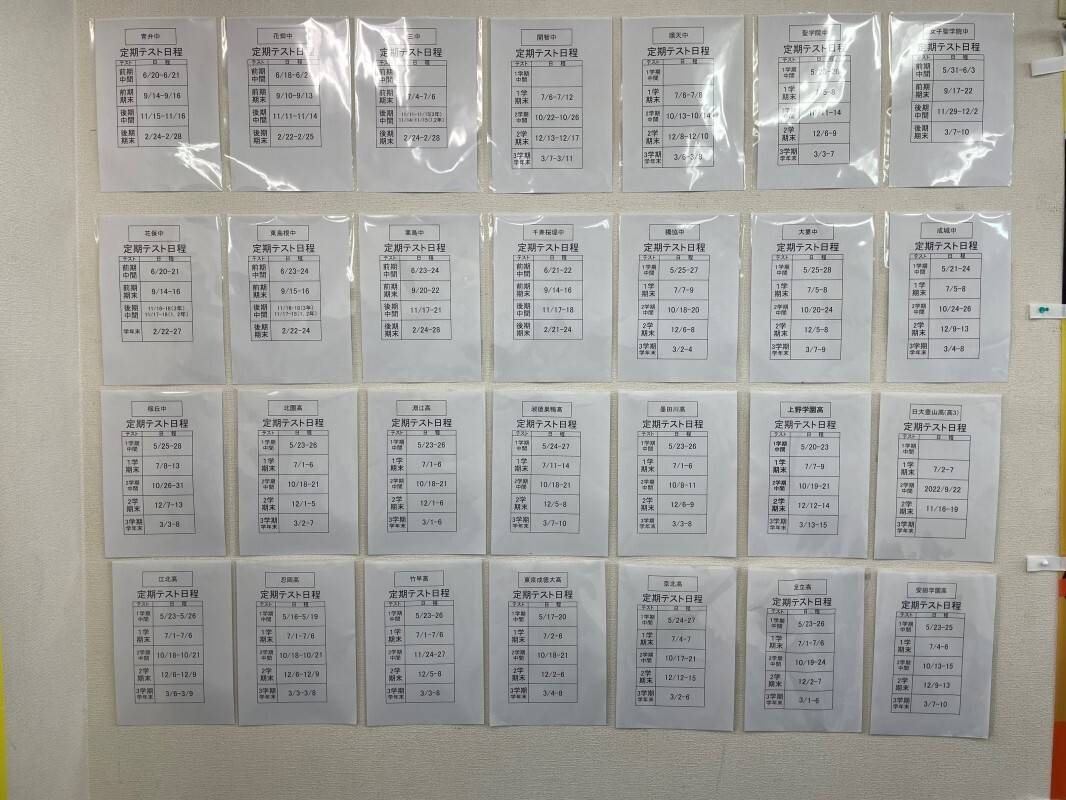 青井中
定期テスト日程
テスト 日 程
前期中間 6/20-6/21
前期期末 9/14-9/16
後期中間 11/15-11/16
後期期末 2/24-2/28
花畑中
定期テスト日程
テスト 日 程
前期中間
前期期末 9/10-9/13
後期中間 11/11-11/14
後期期末 2/22-2/25
三中
定期テスト日程
前期中間
前期期末 7/4-7/6
後期中間
後期期末 2/24-2/28
開智中
定期テスト日程
テスト 日 程
1学期中間
1学期末 7/6-7/12
2学期中間 10/22-10/26
2学期末 12/13-12/17
3学期学年末 3/7-3/11
順天中
定期テスト日程
テスト 日 程
1学期中間
1学期末 7/6-7/8
2学期中間 10/13-10/14
2学期末 12/8-12/10
3学期学年末
聖学院中
定期テスト日程
テスト 日 程
1学期中間
1学期末 7/5-8
2学期中間
2学期末 12/6-9
3学期学年末 3/3-7
女子聖学院中
定期テスト日程
テスト 日 程
前期中間 5/31-6/3
前期期末 9/17-22
後期中間 11/29-12/2
後期期末 3/7-10
花保中
定期テスト日程
テスト 日 程
前期中間 6/20-21
前期期末 9/14-16
後期中間 11/16-18(3年)
11/17-18(1, 2年)
学年末 2/22-27
東島根中
定期テスト日程
テスト 日 程
前期中間 6/23-24
前期期末 9/15-16
後期中間
後期期末 2/22-24
栗島中
定期テスト日程
テスト 日 程
前期中間 6/23-24
前期期末 9/20-22
後期中間 11/17-21
後期期末 2/24-28
千寿桜堤中
定期テスト日程
テスト 日 程
前期中間 6/21-22
前期期末 9/14-16
後期中間 11/17-18
後期期末 2/21-24
獨協中
定期テスト日程
テスト 日 程
1学期中間 5/25-27
1学期末 7/7-9
2学期中間 10/18-20
2学期末 12/6-8
3学期学年末 3/2-4
大妻中
定期テスト日程
テスト 日 程
1学期中間 5/25-28
1学期末 7/5-8
2学期中間 10/20-24
2学期末 12/5-8
3学期学年末 3/7-9
成城中
定期テスト日程
テスト 日 程
1学期中間 5/21-24
1学期末 7/5-8
2学期中間 10/24-26
2学期末 12/9-13
3学期学年末 3/4-8
桜丘中
定期テスト日程
テスト 日 程
1学期中間 5/25-28
1学期末 7/8-13
2学期中間 10/26-31
2学期末 12/7-13
3学期学年末 3/3-8
北園高
定期テスト日程
テスト 日 程
1学期中間 5/23-26
1学期末 7/1-6
2学期中間 10/18-21
2学期末 12/1-5
3学期学年末 3/2-7
淵江高
定期テスト日程
テスト 日 程
1学期中間 5/23-26
1学期末 7/1-6
2学期中間 10/18-21
2学期末 12/1-6
3学期学年末 3/1-6
淑徳巣鴨高
定期テスト日程
テスト 日 程
1学期中間 5/24-27
1学期末 7/11-14
2学期中間 10/18-21
2学期末 12/5-8
3学期学年末 3/7-10
墨田川高
定期テスト日程
テスト 日 程
1学期中間 5/23-26
1学期末 7/1-6
2学期中間 10/8-11
2学期末 12/6-9
3学期学年末 3/3-8
上野学園高
定期テスト日程
テスト 日 程
1学期中間 5/20-23
1学期末 7/7-9
2学期中間 10/19-21
2学期末 12/12-14
3学期学年末 3/13-15
日大豊山高(高3)
定期テスト日程
テスト 日 程
1学期中間
1学期末 7/2-7
2学期中間 2022/9/22
2学期末 11/16-19
3学期学年末
江北高
定期テスト日程
テスト 日 程
1学期中間 5/23-5/26
1学期末 7/1-7/6
2学期中間 10/18-10/21
2学期末 12/6-12/9
3学期学年末 3/6-3/9
忍岡高
定期テスト日程
テスト 日 程
1学期中間 5/16-5/19
1学期末 7/1-7/6
2学期中間 10/18-10/21
2学期末 12/6-12/9
3学期学年末 3/3-3/8
竹早高
定期テスト日程
テスト 日 程
1学期中間 5/23-26
1学期末 7/1-7/6
2学期中間 11/24-27
2学期末 12/5-8
3学期学年末 3/3-8
東京成徳大高
定期テスト日程
テスト 日 程
1学期中間 5/17-20
1学期末 7/2-6
2学期中間 10/18-21
2学期末 12/2-6
3学期学年末 3/4-8
京北高
定期テスト日程
テスト 日 程
1学期中間 5/24-27
1学期末 7/4-7
2学期中間 10/17-21
2学期末 12/12-15
3学期学年末 3/2-6
足立高
定期テスト日程
テスト 日 程
1学期中間 5/23-26
1学期末 7/1-7/6
2学期中間 10/19-24
2学期末 12/2-7
3学期学年末 3/1-6
安田学園高
定期テスト日程
テスト 日 程
1学期中間 5/23-25
1学期末 7/4-6
2学期中間 10/13-15
2学期末 12/9-13
3学期学年末 3/7-10